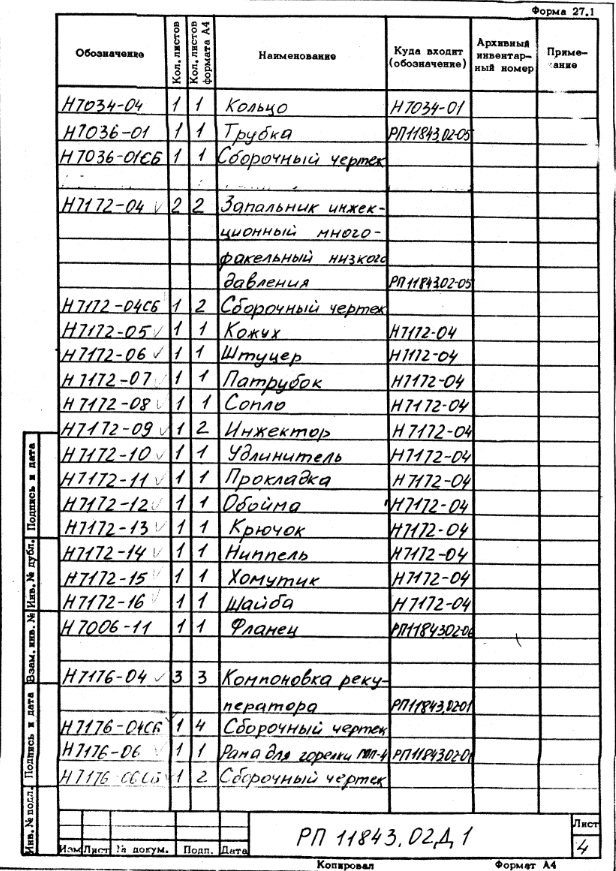 Форма 27.1
Обозначение Кол. листов Кол. листов формата А4 Наименование Куда входит (обозначение) Архивный инвентарный номер Примечание
Н7034-04 1 1 Кольцо Н7034-01
Н7036-01 1 1 Трубка РП11843.02-05
Н7036-01СБ 1 1 Сборочный чертеж
Н7172-04 2 2 Запальник инжек-
ционный много-
факельный низкого
давления РП11843.02-05
Н7172-04СБ 1 2 Сборочный чертеж
Н7172-05 1 1 Кожух Н7172-04
Н7172-06 1 1 Штуцер Н7172-04
Н7172-07 1 1 Патрубок Н7172-04
Н7172-08 1 1 Сопло Н7172-04
Н7172-09 1 2 Инжектор Н7172-04
Н7172-10 1 1 Удлинитель Н7172-04
Н7172-11 1 1 Прокладка Н7172-04
Н7172-12 1 1 Обойма Н7172-04
Н7172-13 1 1 Крючок Н7172-04
Н7172-14 1 1 Ниппель Н7172-04
Н7172-15 1 1 Хомутик Н7172-04
Н7172-16 1 1 Шайба Н7172-04
Н7006-11 1 1 Фланец РП11843.02-06
Н7176-04 3 3 Компоновка реку-
ператора РП11843.02-01
Н7176-04СБ 1 4 Сборочный чертеж
Н7176-06 1 1 Рама для горелки РП11843.02-01
Н7176-06СБ 1 2 Сборочный чертеж
Инв. № подл. Подпись и дата Взам. инв. № Инв. № дубл. Подпись и дата
РП 11843.02Д1
Лист
4
Изм Лист № докум. Подп. Дата
Копировал Формат А4